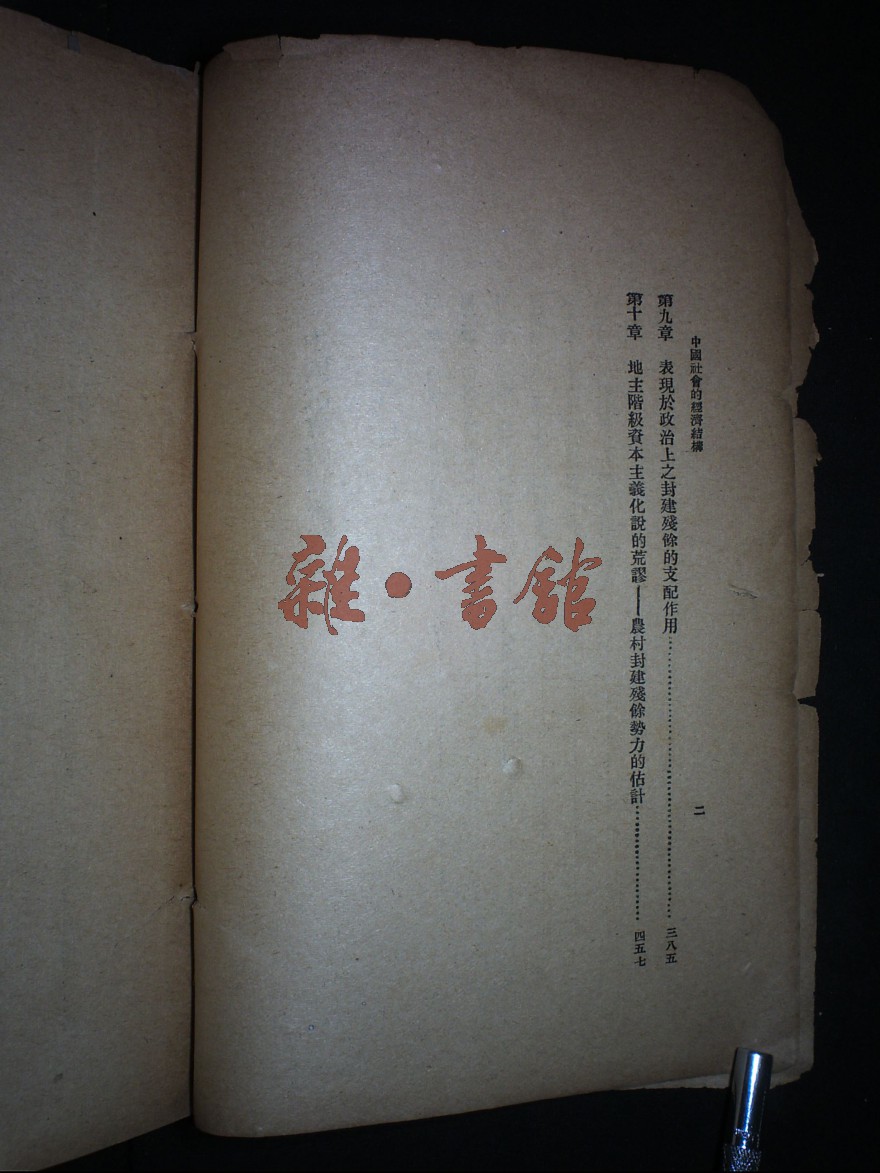 中國社會的經濟結構
二
第九章 表現於政治上之封建殘餘的支配作用……三八五
第十章 地主階級資本主義化說的荒謬——農村封建殘餘勢力的估計……四五七
雜·書館